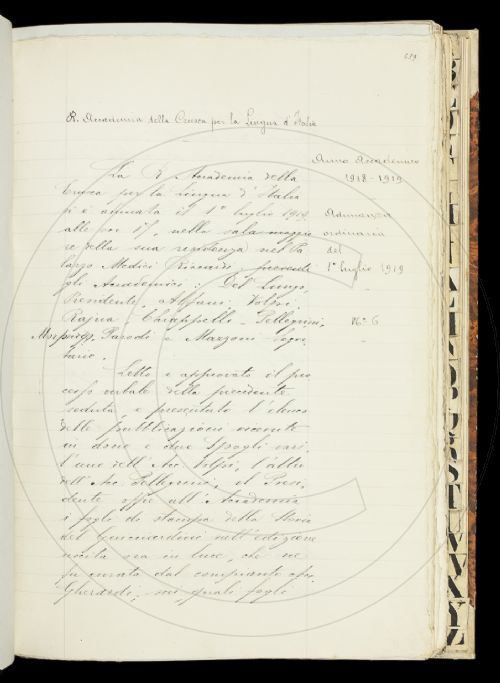 639
R. Accademia della Crusca per la Lingua d'Italia
Anno Accademico
1918-1919
Adunanza
ordinaria
del
1° luglio 1919
N° 6
La R. Accademia della
Crusca per la Lingua d'Italia
si è adunata il 1° luglio 1919,
alle ore 17, nella sala maggio
re della sua residenza nel Pa
lazzo Medici Riccardi; presenti
gli Accademici: Del Lungo,
Presidente, Alfani, Volpi,
Rajna, Chiappelli, Pellegrini,
Morpurgo, Parodi e Mazzoni Segre
tario.
Letto e approvato il pro
cesso verbale della precedente
seduta, e presentato l'elenco
delle pubblicazioni ricevute
in dono e due spogli vari,
l'uno dell'Acc. Volpi, l'altro
dell'Acc. Pellegrini, il Presi
dente offre all'Accademia
i fogli di stampa della Storia
del Guicciardini nell'edizione
uscita ora in luce, che ne
fu curata dal compianto
Gherardi; nei quali fogli